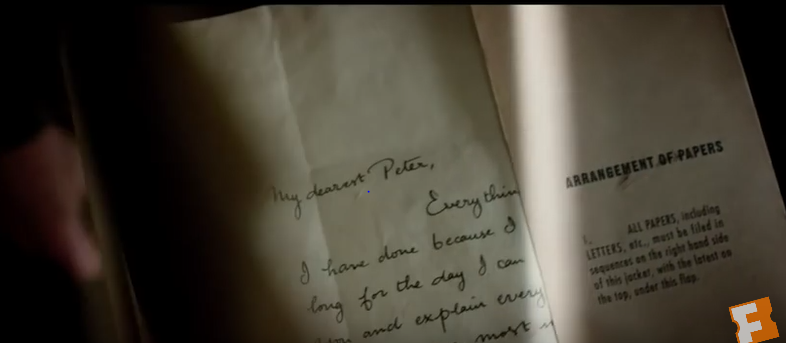 My dearest Peter,
Everythin
I have done because I
long for the day I can
and explain every
most
ARRANGEMENT OF PAPERS
1. ALL PAPERS, including
LETTERS, etc., must be filed in
sequences on the right hand side
of this jacket, with the latest on
the top, under this flap.
F